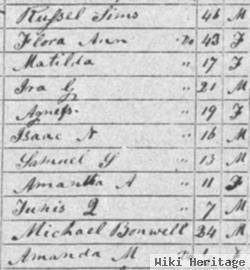 Russel Sims 46 M
Flora Ann Do 43 F
Matilda " 17 F
Ira G " 21 M
Agness " 19 F
Isaac N " 16 M
Samuel G " 13 M
Amantha A " 11 F
Tunis Q " 7 M
Michael Bonwell 34 M
Amanda M
Wiki Heritage